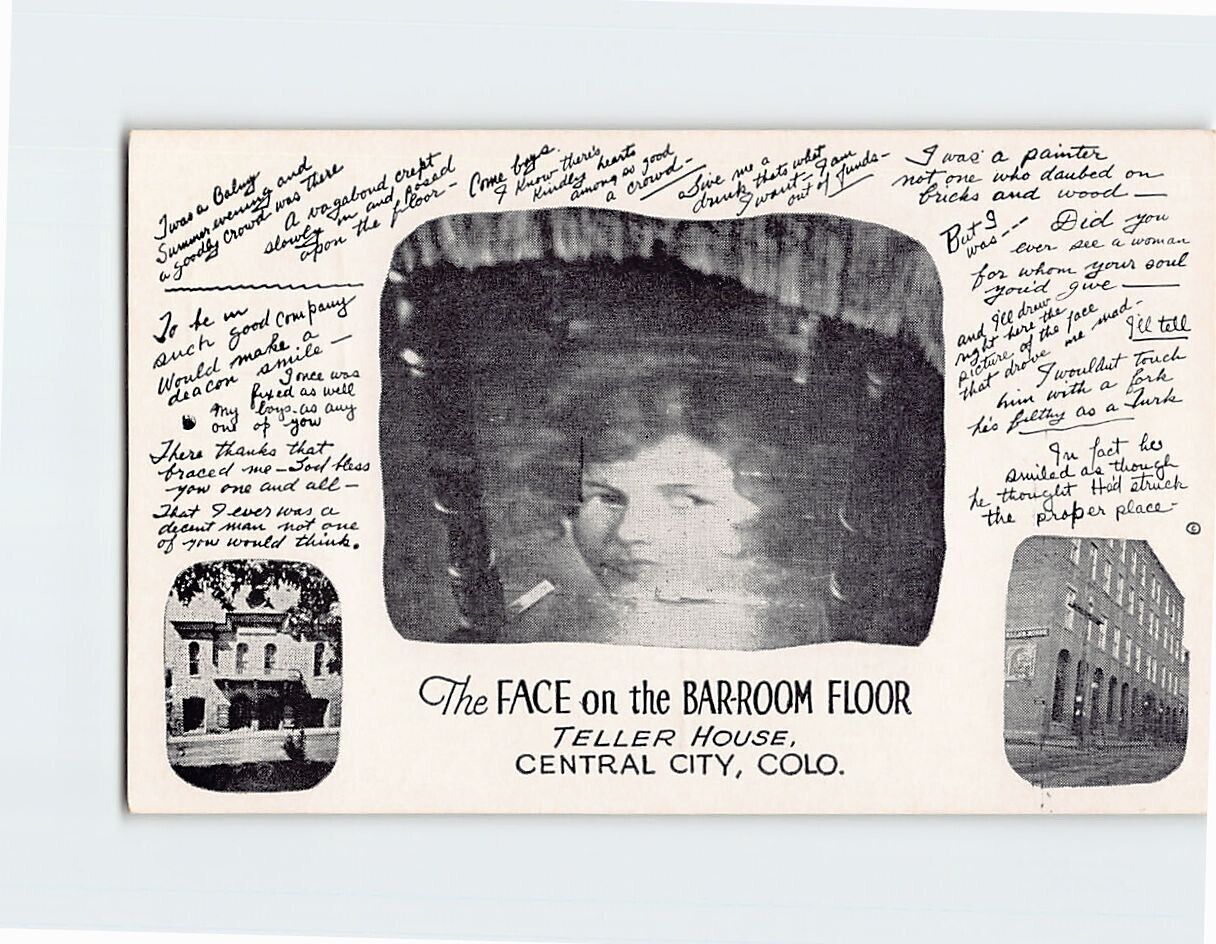 Twas a Balmy
Summer evening and
a goodly crowd was there
A vagabond crept
slowly in and posed
upon the floor-
Come boys.
I know there's
kindly hearts
among so good
a crowd-
Give me a
drink thats what
I want-I am
out of funds-
I was a painter
not one who daubed on
bricks and wood—
But I
was--
Did you
ever see a woman
for whom your soul
you'd give—
and I'll draw
right here the
picture of the face
that drove me mad-
I'll tell
I wouldnt touch
him with a fork
he's filthy as a Turk
In fact he
smiled as though
he thought He'd struck
the proper place-
©
To be in
such good company
Would make a
deacon smile—
I once was
fixed as well
My boys-as any
one of you
There thanks that
braced me-God bless
you one and all-
That I ever was a
decent man not one
of you would think.
The FACE on the BAR-ROOM FLOOR
TELLER HOUSE,
CENTRAL CITY, COLO.